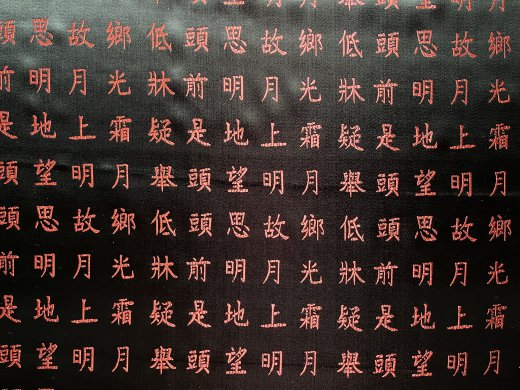 頭思故鄉低頭思故鄉低頭思故鄉
前明月光牀前明月光牀前明月光
是地上霜疑是地上霜疑是地上霜
頭望明月舉頭望明月舉頭望明月
頭思故鄉低頭思故鄉低頭思故鄉
前明月光牀前明月光牀前明月光
是地上霜疑是地上霜疑是地上霜
頭望明月舉頭望明月舉頭望明月